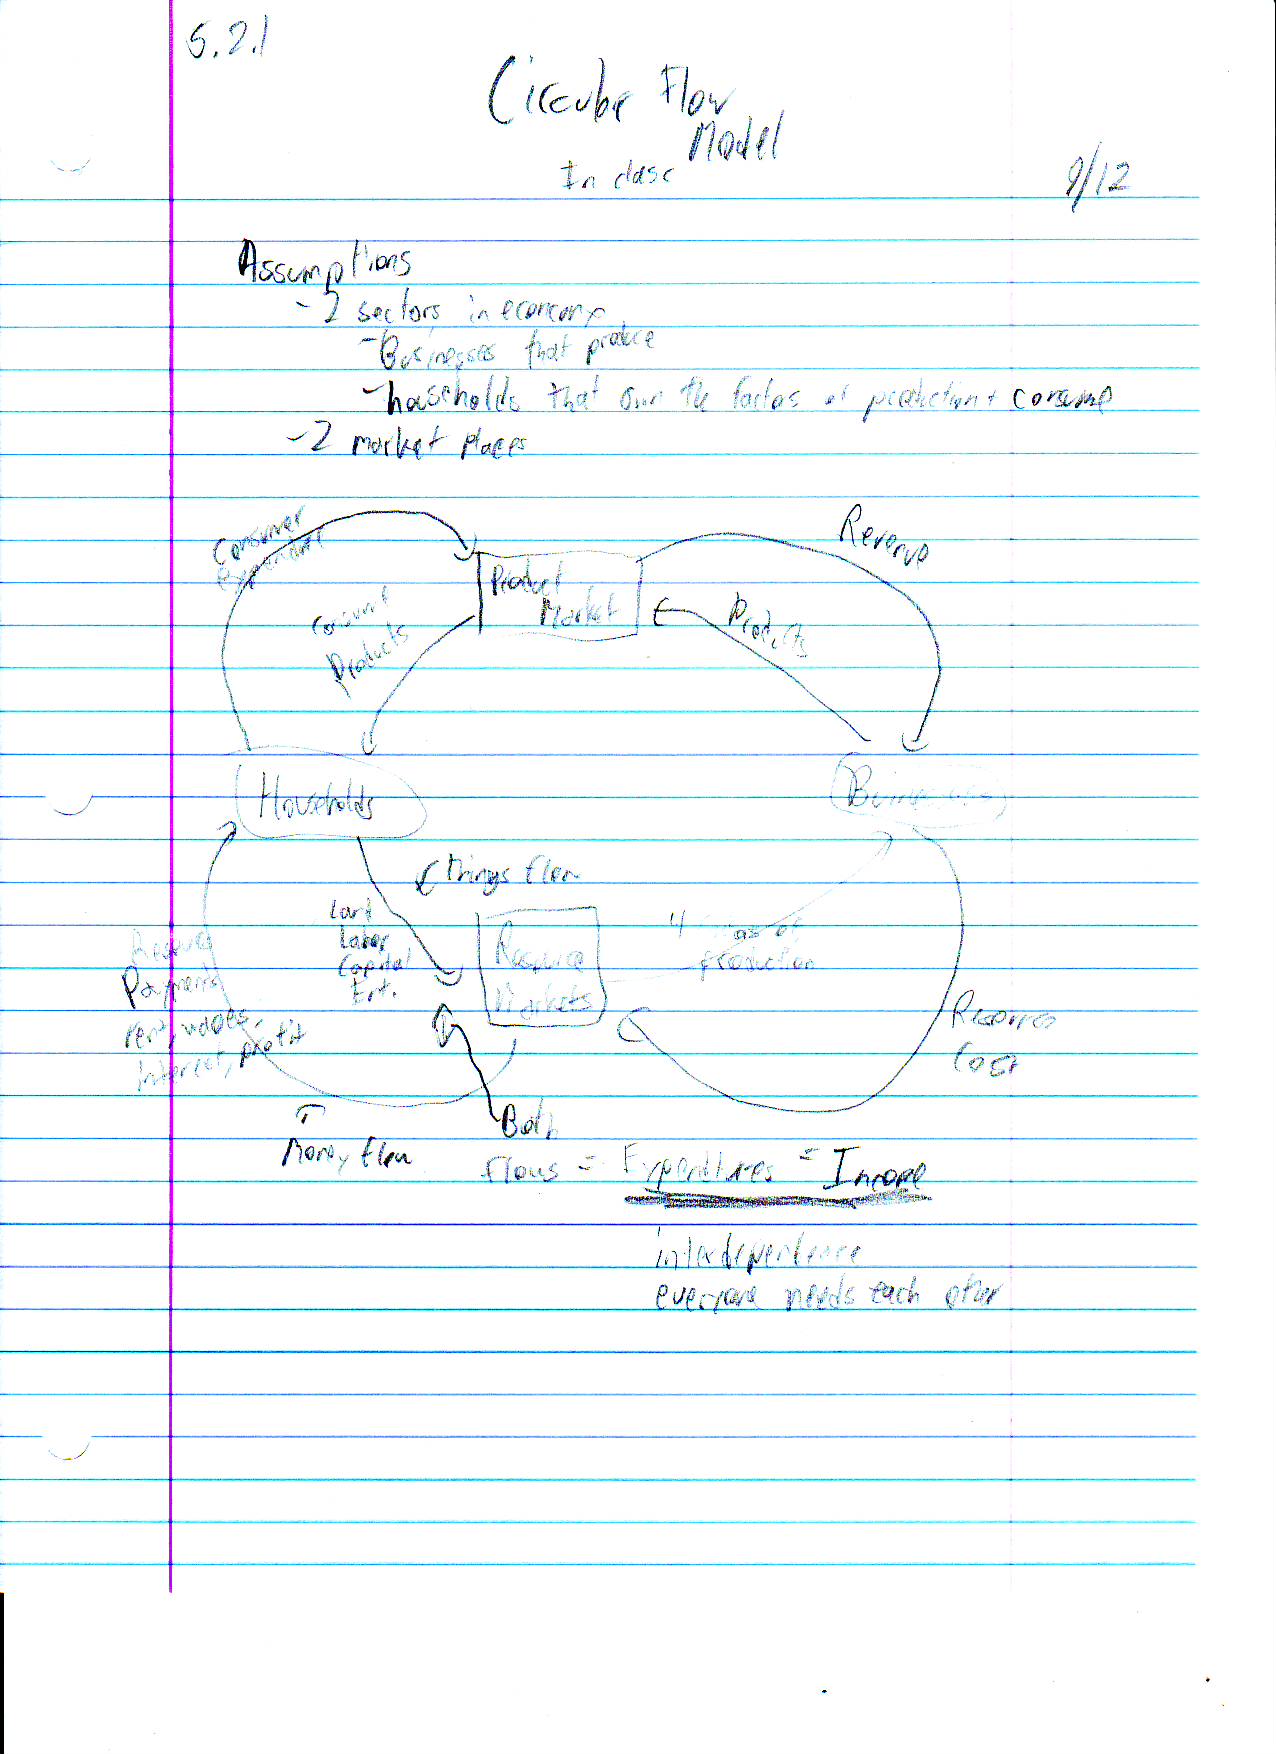 5.2.1
Circular Flow
Model
In class
9/12
Assumptions
- 2 sectors in economy
- Businesses that produce
- households that own the factors of production + consume
- 2 market places
Consumer
Expenditure
Revenue
Product
Market
Products
Consumer
Products
Households
Businesses
Things flow
Land
Labor
Capital
Ent.
Resource
Markets
4 of
production
Resource
Payments
rent, wages,
interest, profit
Resource
Cost
Money flow
Both
flows = Expenditures = Income
interdependence
everyone needs each other